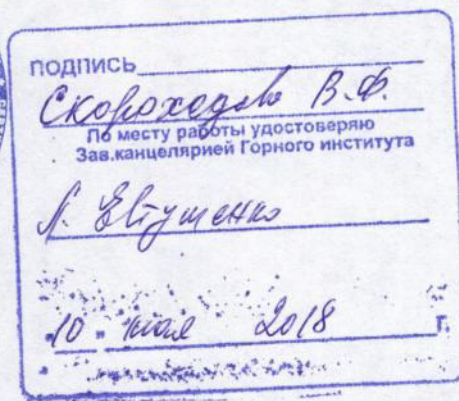 ПОДПИСЬ
Скороходова В.Ф.
По месту работы удостоверяю
Зав.канцелярией Горного института
Л. Евтушенко
"10" мая 2018 г.